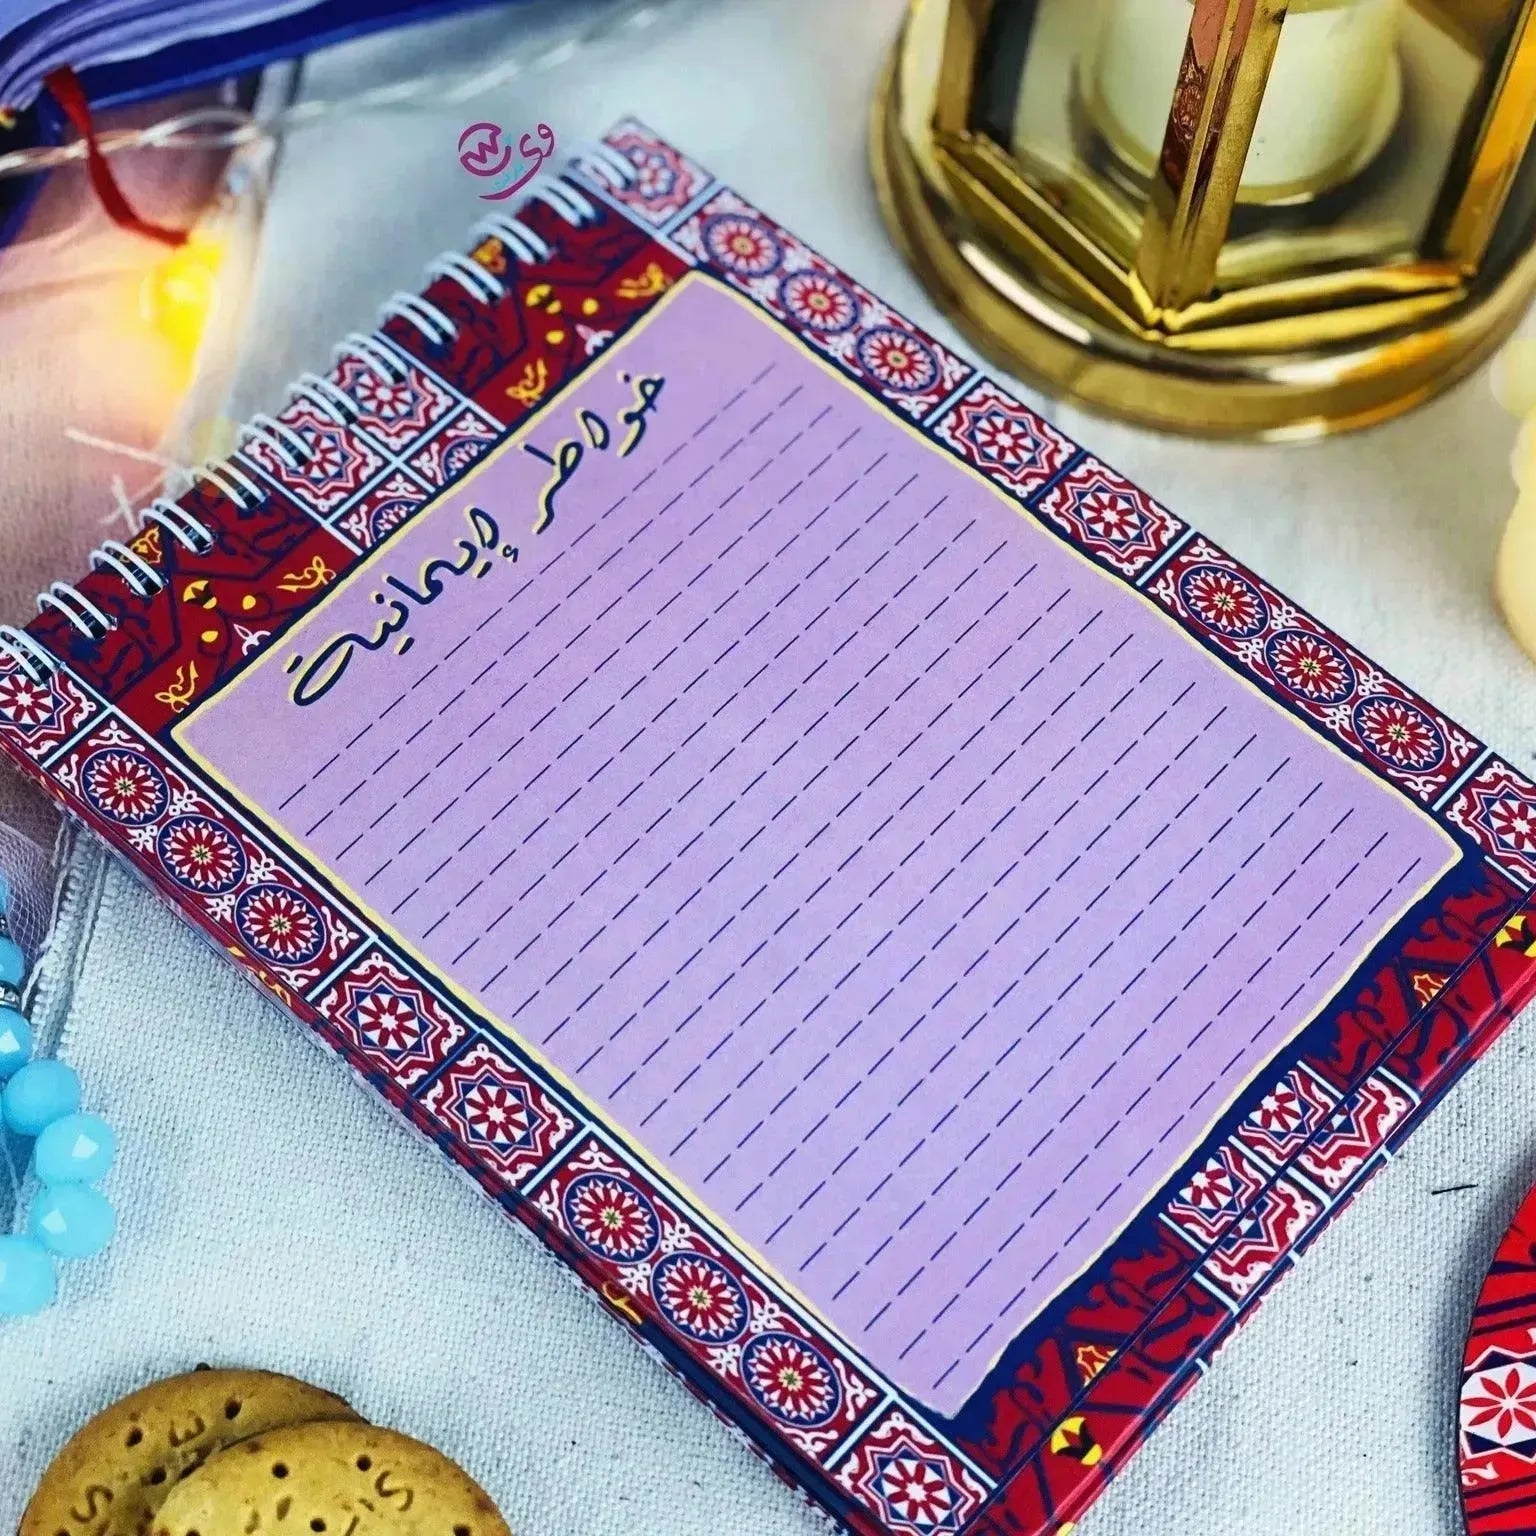 خواطر إيمانية